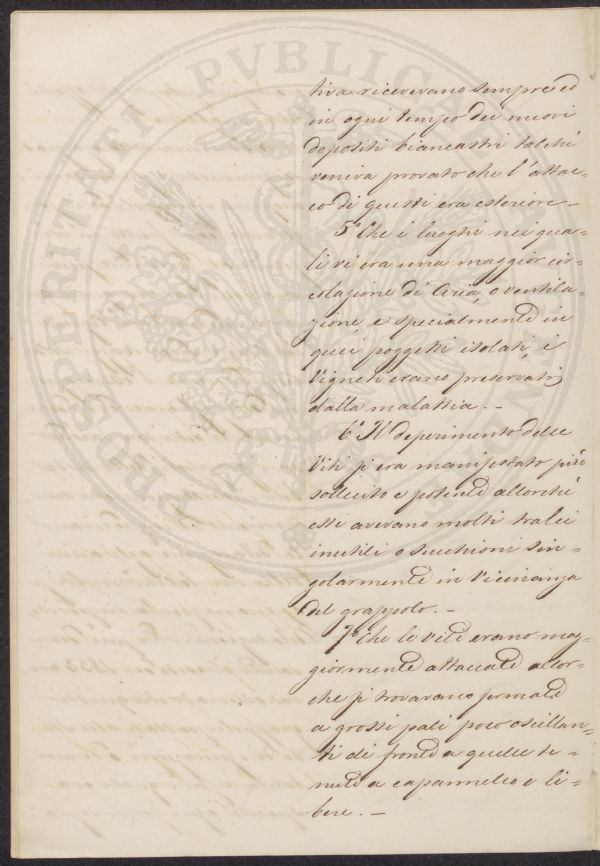 PROSPERITATI PVBLICAE
tiva ricevevano sempre ed
in ogni tempo dei nuovi
depositi biancastri talchè
veniva provato che l'attac-
co di questi era esteriore. -
5.° Che i luoghi nei qua-
li vi era una maggior cir-
colazione di Aria, o ventila-
zione, e specialmente in
quei poggetti isolati, i
Vigneti erano preservati
dalla malattia. -
6.° Il deperimento delle
Viti si era manifestato più
sollecito e potente allorchè
essi avevano molti tralci
inutili o succhioni sin-
golarmente in Vicinanza
del grappolo. -
7.° Che le Viti erano mag-
giormente attaccate allor-
che si trovavano fermate
a grossi pali poco oscillan-
ti di fronte a quelle te-
nute a capannello e li-
bere. -